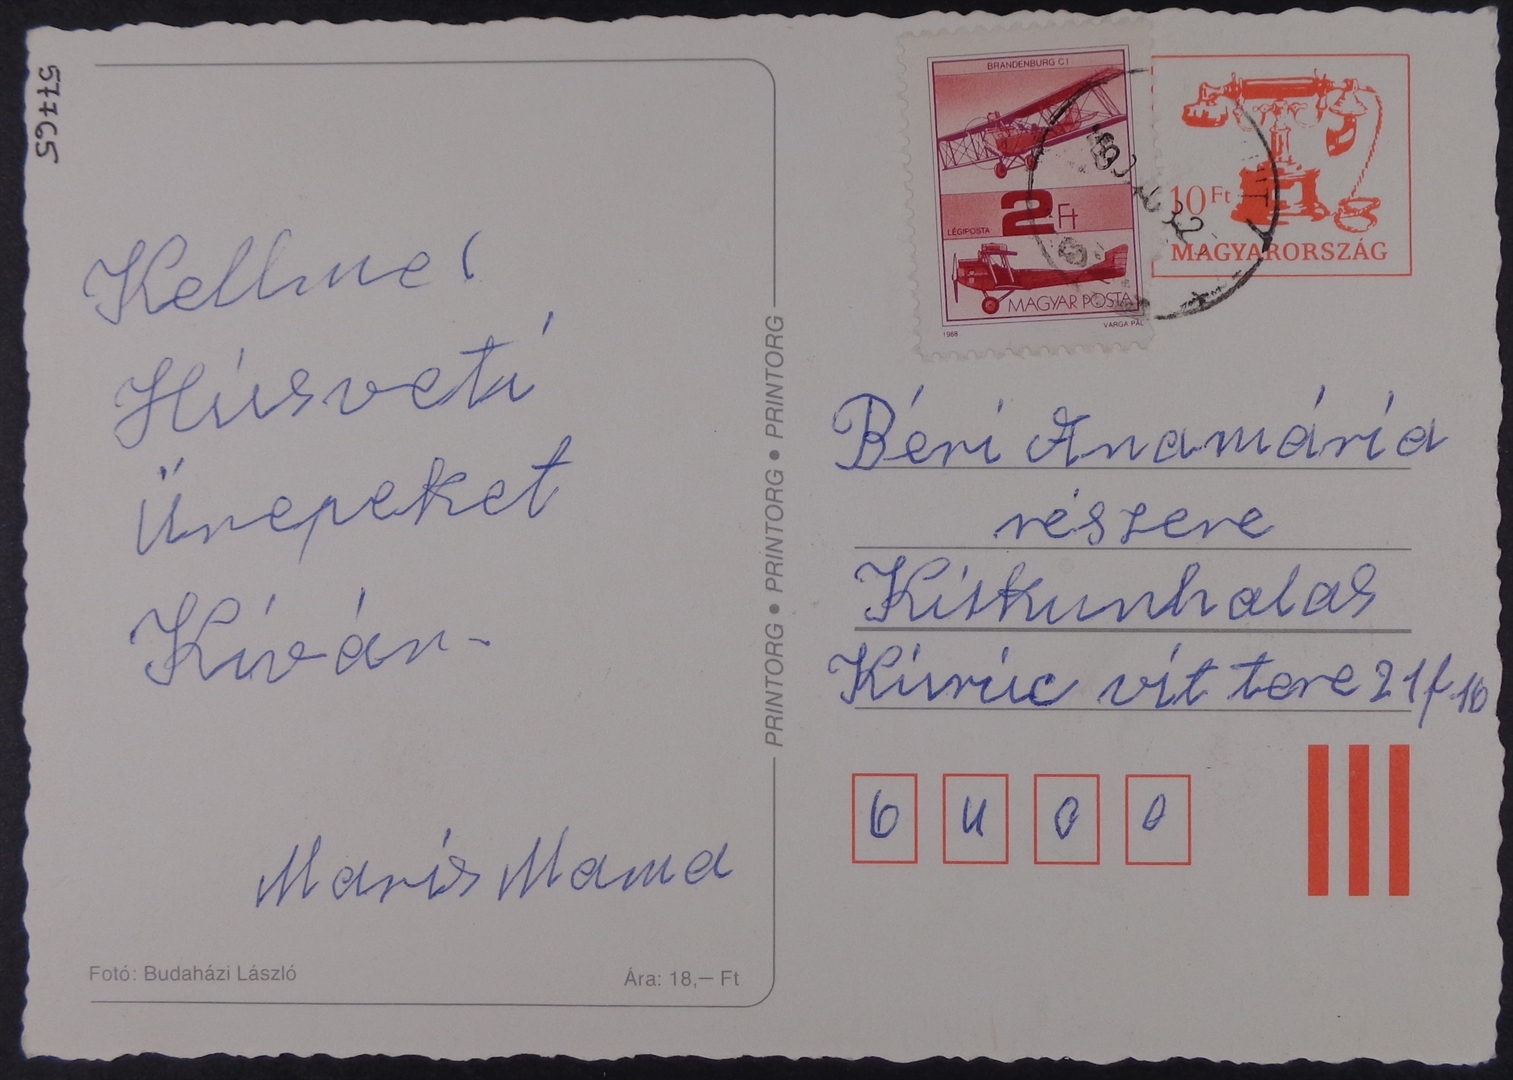 57765
Kellme(
Húsveti
Ünepeket
Kíván-
Maris Mama
Fotó: Budaházi László
Ára: 18,— Ft
PRINTORG • PRINTORG • PRINTORG
BRANDENBURG C I
2 Ft
LÉGIPOSTA
MAGYAR POSTA
1988
VARGA PÁL
10 Ft
MAGYARORSZÁG
Béri Anamária
részere
Kiskunhalas
Kuruc vit tere 21 f. 10
6400